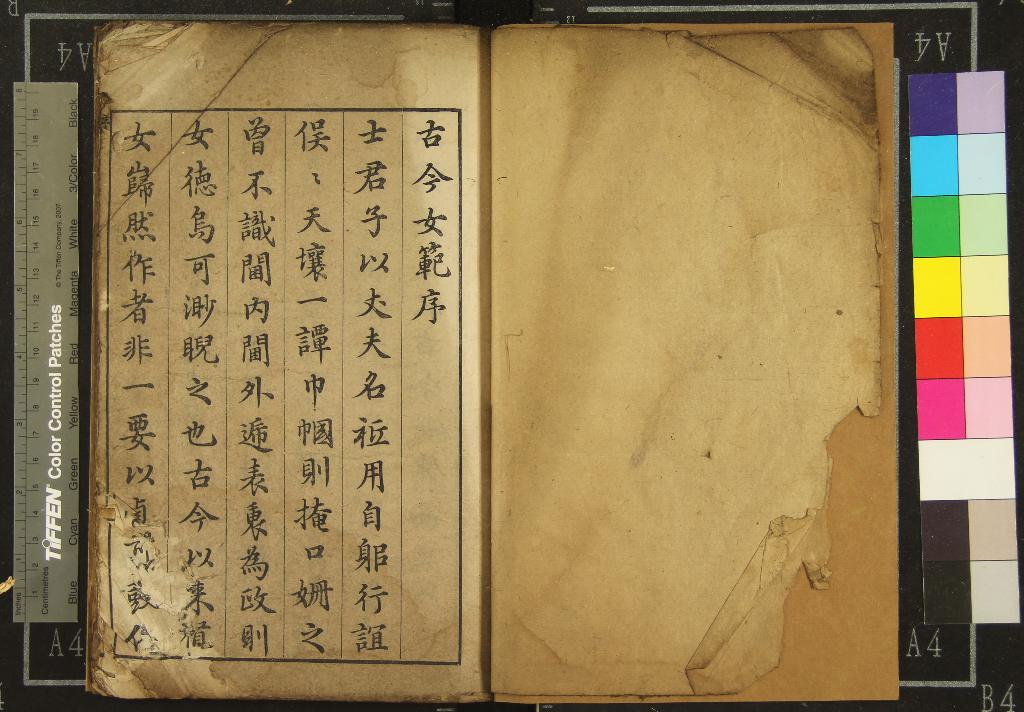 古今女範序
士君子以丈夫名秪用自躳行誼
俁〻天壤一譚巾幗則掩口姍之
曾不識閫內閫外遞表裏為政則
女徳烏可渺睨之也古今以東道
女歸然作者非一要以貞
A4
A4
A4
A4
B4
TIFFEN Color Control Patches
© The Tiffen Company, 2007
Inches
Centimetres
Blue
Cyan
Green
Yellow
Red
Magenta
White
3/Color
Black